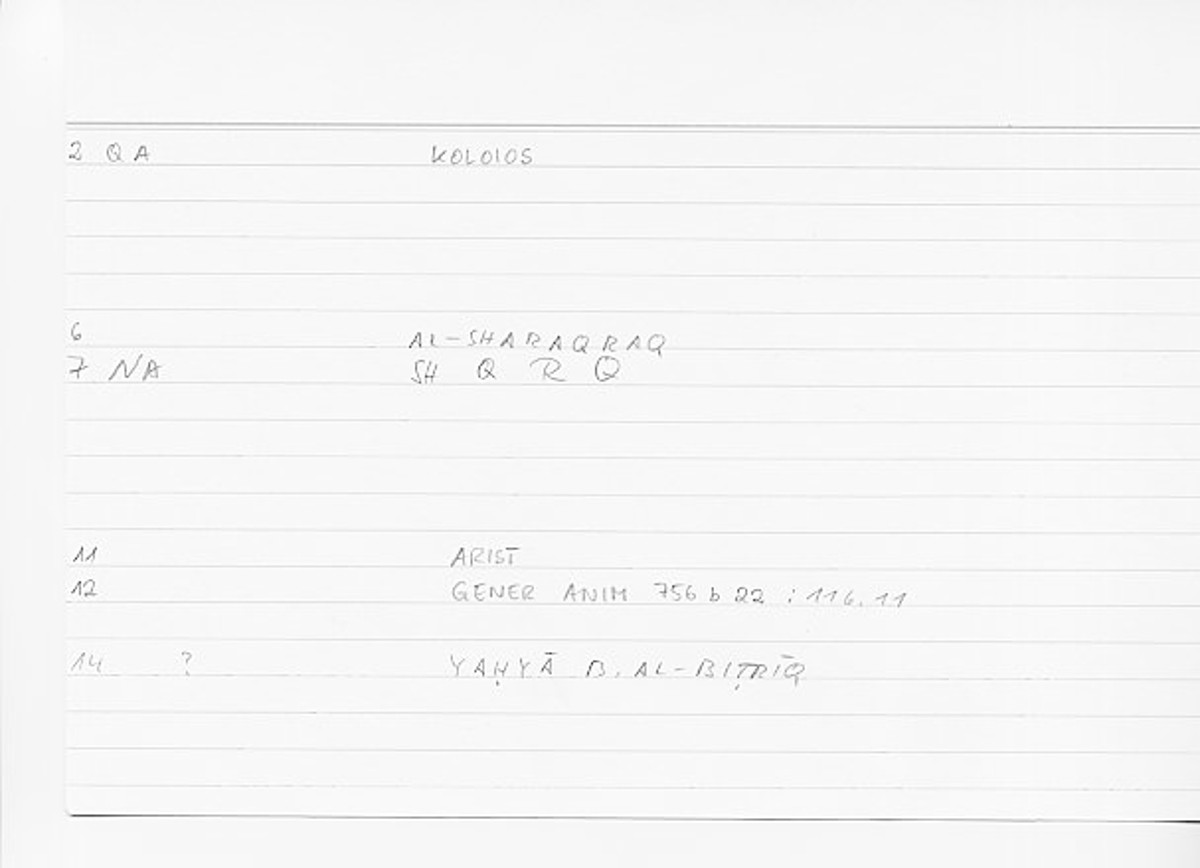 2 QA KOLOIOS
6 AL-SHARAQRAQ
7 NA SH Q R Q
11 ARIST
12 GENER ANIM 756 b 22 : 116.11
14 ? YAḤYĀ B. AL-BIṬRĪQ